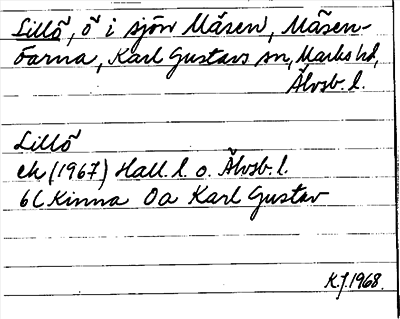 Lillö, ö i sjön Måsen, Måsen-
öarna, Karl Gustavs sn, Marks hd,
Älvsb. l.
Lillö
ek (1967) Hall. l. o. Älvsb. l.
6C Kinna 0a Karl Gustav
K.J. 1968.